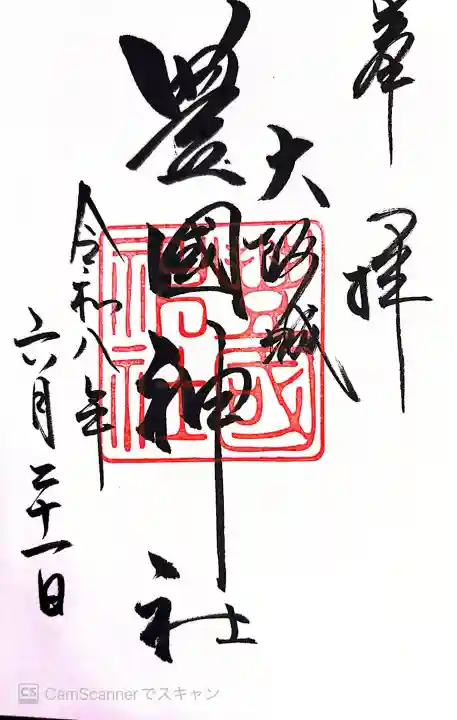 奉拝
大阪城
豊國神社
豊國神社
令和八年
六月二十一日
CS CamScannerでスキャン